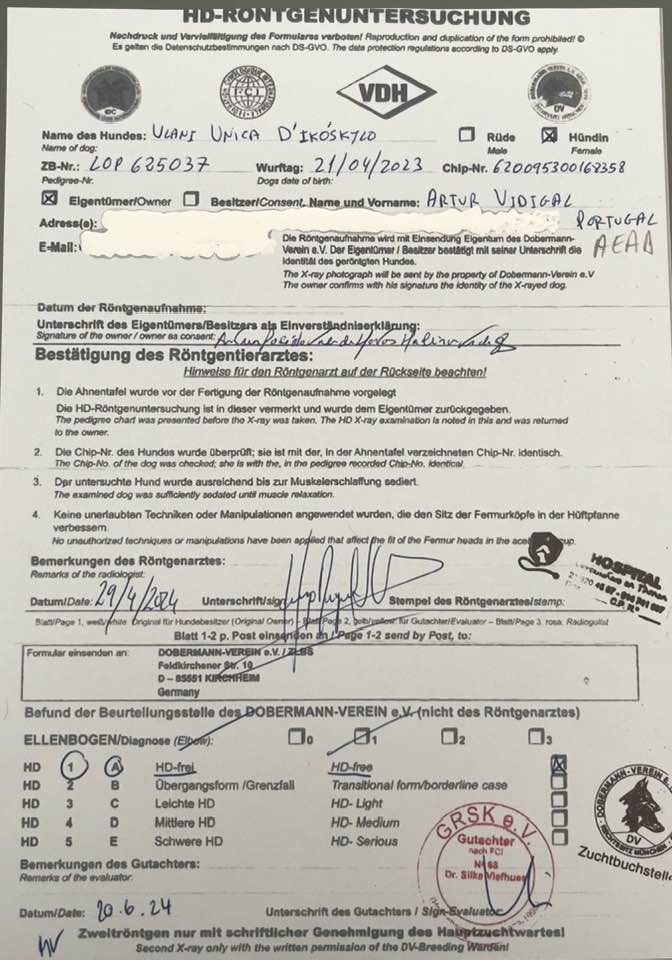 HD-RÖNTGENUNTERSUCHUNG
Nachdruck und Vervielfältigung des Formulares verboten! Reproduction and duplication of the form prohibited! ©
Es gelten die Datenschutzbestimmungen nach DS-GVO. The data protection regulations according to DS-GVO apply.
FCI
VDH
DV
Name des Hundes: ULANI UNICA D'IKÓSKYLO Rüde Hündin
Name of dog: Male Female
ZB-Nr.: LOP 625037 Wurftag: 21/04/2023 Chip-Nr. 620095300168358
Pedigree-Nr. Dogs date of birth:
Eigentümer/Owner Besitzer/Consent. Name und Vorname: ARTUR VIDIGAL
Adress(e): PORTUGAL
E-Mail: AEAD
Die Röntgenaufnahme wird mit Einsendung Eigentum des Dobermann-
Verein e.V. Der Eigentümer / Besitzer bestätigt mit seiner Unterschrift die
Identität des geröngten Hundes.
The X-ray photograph will be sent by the property of Dobermann-Verein e.V
The owner confirms with his signature the identity of the X-rayed dog.
Datum der Röntgenaufnahme:
Unterschrift des Eigentümers/Besitzers als Einverständniserklärung:
Signature of the owner / owner as consent:
Bestätigung des Röntgentierarztes:
Hinweise für den Röntgenarzt auf der Rückseite beachten!
1. Die Ahnentafel wurde vor der Fertigung der Röntgenaufnahme vorgelegt
Die HD-Röntgenuntersuchung ist in dieser vermerkt und wurde dem Eigentümer zurückgegeben.
The pedigree chart was presented before the X-ray was taken. The HD X-ray examination is noted in this and was returned
to the owner.
2. Die Chip-Nr. des Hundes wurde überprüft; sie ist mit der, in der Ahnentafel verzeichneten Chip-Nr. identisch.
The Chip-No. of the dog was checked; she is with the, in the pedigree recorded Chip-No. identical.
3. Der untersuchte Hund wurde ausreichend bis zur Muskelerschlaffung sediert.
The examined dog was sufficiently sedated until muscle relaxation.
4. Keine unerlaubten Techniken oder Manipulationen angewendet wurden, die den Sitz der Fermurköpfe in der Hüftpfanne
verbessern.
No unauthorized techniques or manipulations have been applied that affect the fit of the Fermur heads in the
Bemerkungen des Röntgenarztes:
Remarks of the radiologist:
HOSPITAL
Datum/Date: 29/4/2024 Unterschrift/sign Stempel des Röntgenarztes/stamp:
Blatt/Page 1, weiß/white Original für Hundebesitzer (Original Owner) – Blatt/Page 2, gelb/yellow: für Gutachter/Evaluator – Blatt/Page 3. rosa: Radiogulist
Blatt 1-2 p. Post einsenden an / Page 1-2 send by Post, to:
Formular einsenden an: DOBERMANN-VEREIN e.V. / ZLBS
Feldkirchener Str. 10
D – 85551 KIRCHHEIM
Germany
Befund der Beurteilungsstelle des DOBERMANN-VEREIN e.V. (nicht des Röntgenarztes)
ELLENBOGEN/Diagnose (Elbow): 0 1 2 3
HD 1 A HD-frei HD-free
HD 2 B Übergangsform /Grenzfall Transitional form/borderline case
HD 3 C Leichte HD HD- Light
HD 4 D Mittlere HD HD- Medium
HD 5 E Schwere HD HD- Serious
DOBERMANN-VEREIN e.V.
DV
Zuchtbuchstelle
GRSK e.V.
Gutachter
nach FCI
Nr 68
Dr. Silke Viefhues
Bemerkungen des Gutachters:
Remarks of the evaluator:
Datum/Date: 20.6.24 Unterschrift des Gutachters / Sign-Evaluator
Zweitröntgen nur mit schriftlicher Genehmigung des Hauptzuchtwartes!
Second X-ray only with the written permission of the DV-Breeding Warden!